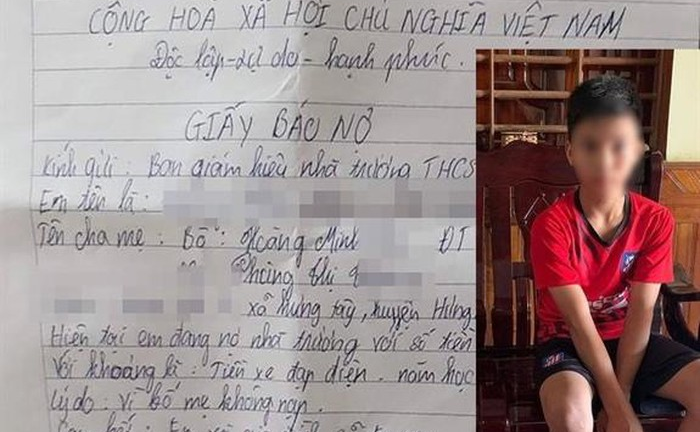 CỘNG HÒA XÃ HỘI CHỦ NGHĨA VIỆT NAM
Độc lập - tự do - hạnh phúc.
GIẤY BÁO NỢ
Kính gửi: Ban giám hiệu nhà trường THCS
Em tên là:
Tên cha mẹ: Bố: Hoàng Minh ĐT
Phùng thị
xã hưng tây, huyện Hưng
Hiện tại em đang nợ nhà trường với số tiền
Với khoảng kì: Tiền xe đạp điện. năm học
Lý do: Vì bố mẹ không nạp.